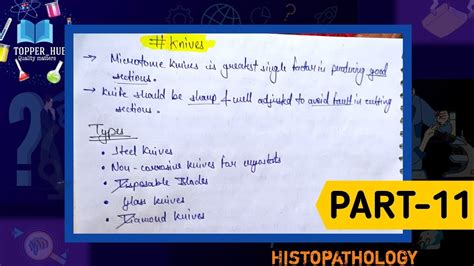 TOPPER_HUB
Quality matters
# Knives
→ Microtome knives is greatest single factor in producing good
sections.
→ Knife should be sharp & well adjusted to avoid fault in cutting
sections.
Types
• Steel Knives
• Non-corrosive knives for cryostats
• Disposable Blades
• Glass knives
• Diamond knives
PART-11
HISTOPATHOLOGY